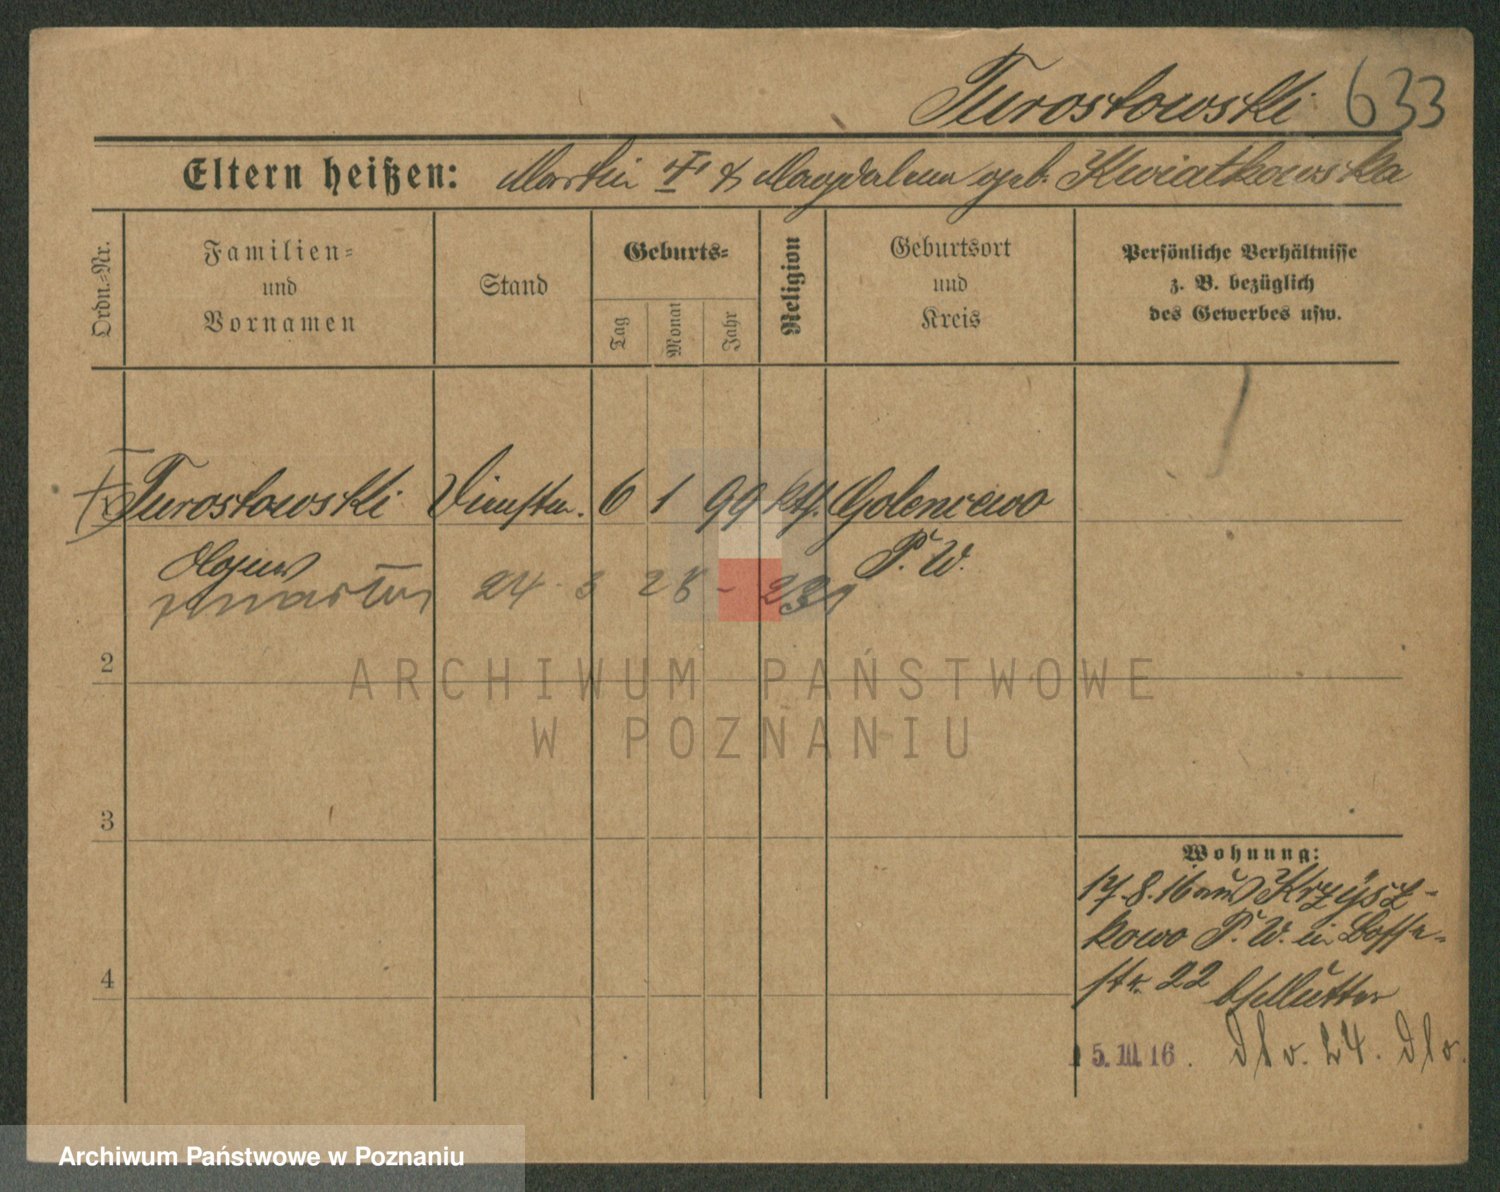 Turostowski 633
Eltern heißen: Martin † & Magdalena geb. Kwiatkowska
Ordn.=Nr.
Familien=
und
Vornamen
Stand
Geburts=
Tag
Monat
Jahr
Religion
Geburtsort
und
Kreis
Persönliche Verhältnisse
z. B. bezüglich
des Gewerbes usw.
Turostowski 6 1 99 kth. Golenczewo
P. W.
24 3 28 -
2
3
4
Wohnung:
17.8.16 aus Krzysz-
kowo P. W. in
str. 22 b/Mutter
15.III.16. v. 24.
ARCHIWUM PAŃSTWOWE
W POZNANIU
Archiwum Państwowe w Poznaniu